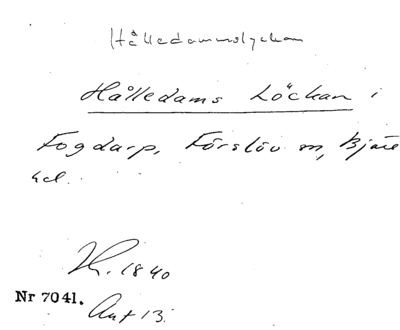 Hålledamslyckan
Hålledams Löckan i
Fogdarp, Förslöv sn, Bjäre
hd.
Kr. 1840
Nr 7041.
Ant 13.